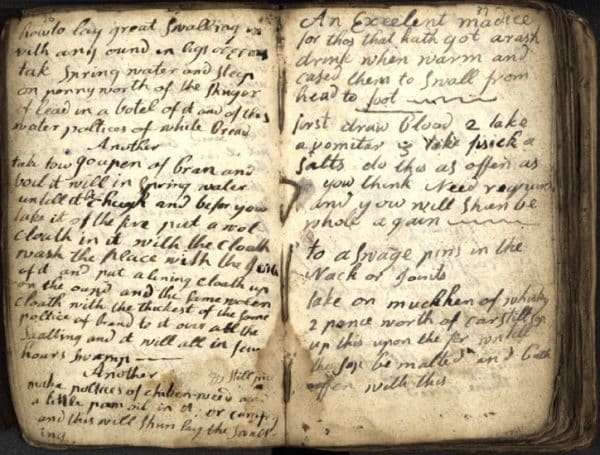 36
how to lay great Swalling in
with any ound in legs or arms
tak Spring water and Steep
on pennyworth of the Shugor
of lead in a botel of it and of this
water poltices of white Bread
Another
tak tow goupen of bran and
boil it will in Spring water
untill it be thugk and befor you
take it of the fire put a wol
cloath in it with the cloath
wash the place with the
of it and put a lining cloath up
on the ound and the same wolen
cloath with the thickest of the same
poltice of brand to it over all the
Swalling and it will all in few
hours Swamp
Another
make poltices of chikenweed and
a little pam oil in it or campfer
and this will Shun lay the Swall
ing
37
An Excelent madice
for thos that hath got a rash
drink when warm and
cased them to Swall from
head to foot
first draw Blood 2 take
a vomiter 3 take phisick a
Salts do this as offen as
you think Need requirs
and you will Shun be
whole again
to aswage pins in the
Nack or Joints
take on muchken of whisky
2 pence worth of Carstill Sop
up this upon the fer untill
the Sop be malted and bath
offen with this